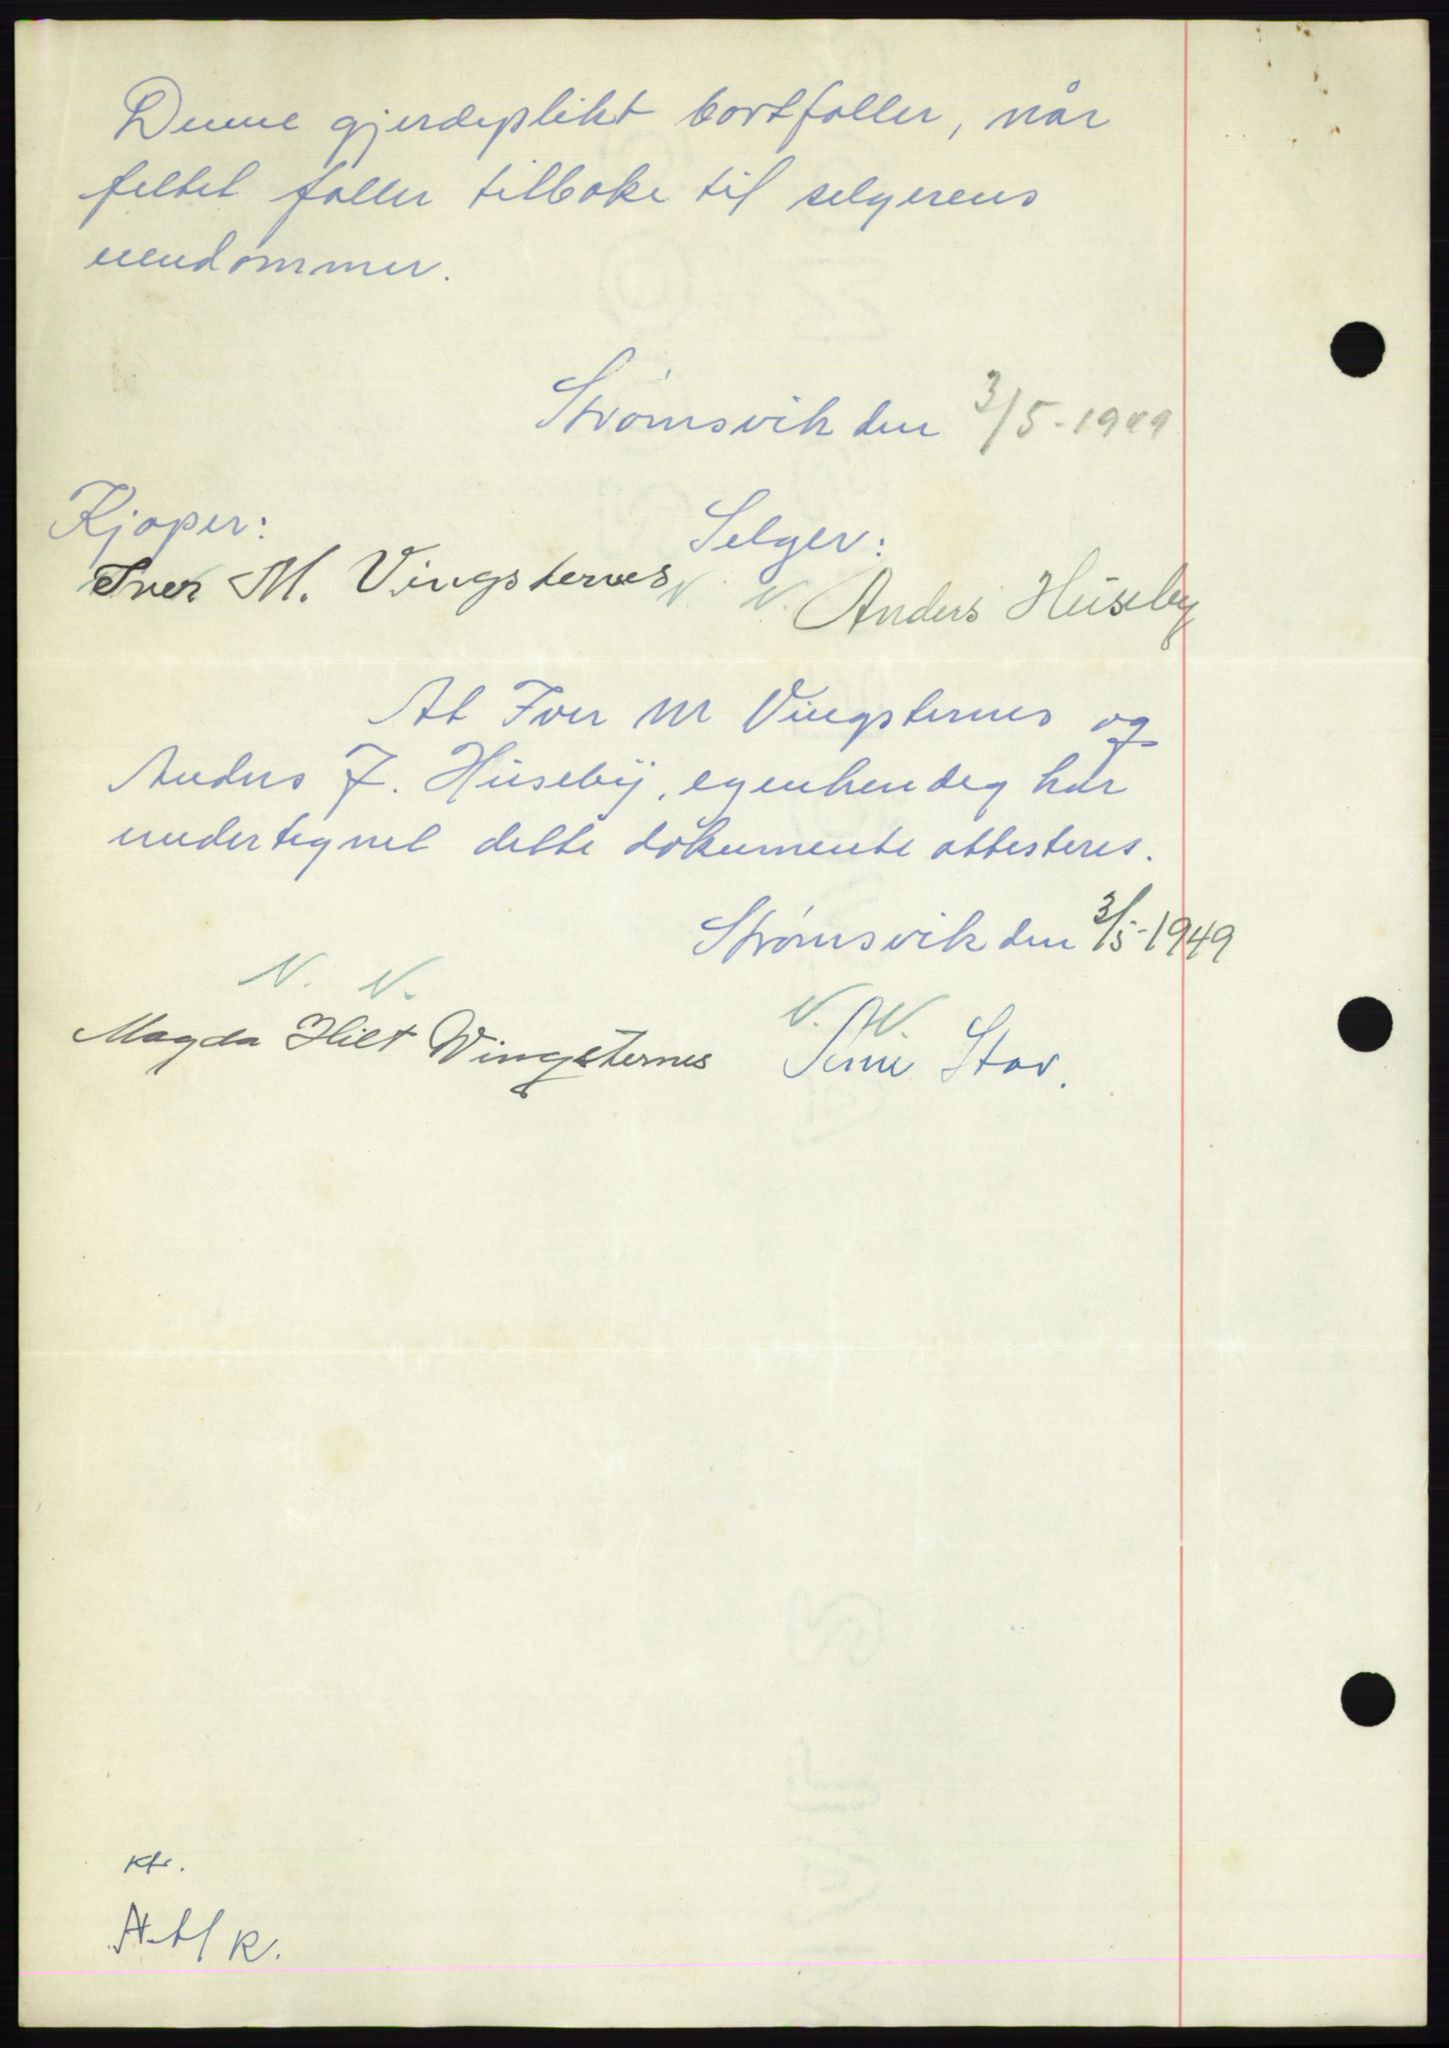 Denne gjerdeplikt bortfaller, når
feltet faller tilbake til selgerens
eiendommer.
Strømsvik den 3/5-1949
Kjøper:
Selger:
Iver M. Vingsternes
N. N. Anders Húseby
At Iver M Vingsternes og
Anders J. Húsebÿ, egenhendeg har
undertegnet dette dokumente attesteres.
Strømsvik den 3/5-1949
N. N.
N. N.
Magda Hilt Wingsternes
Stav.
Ktr.